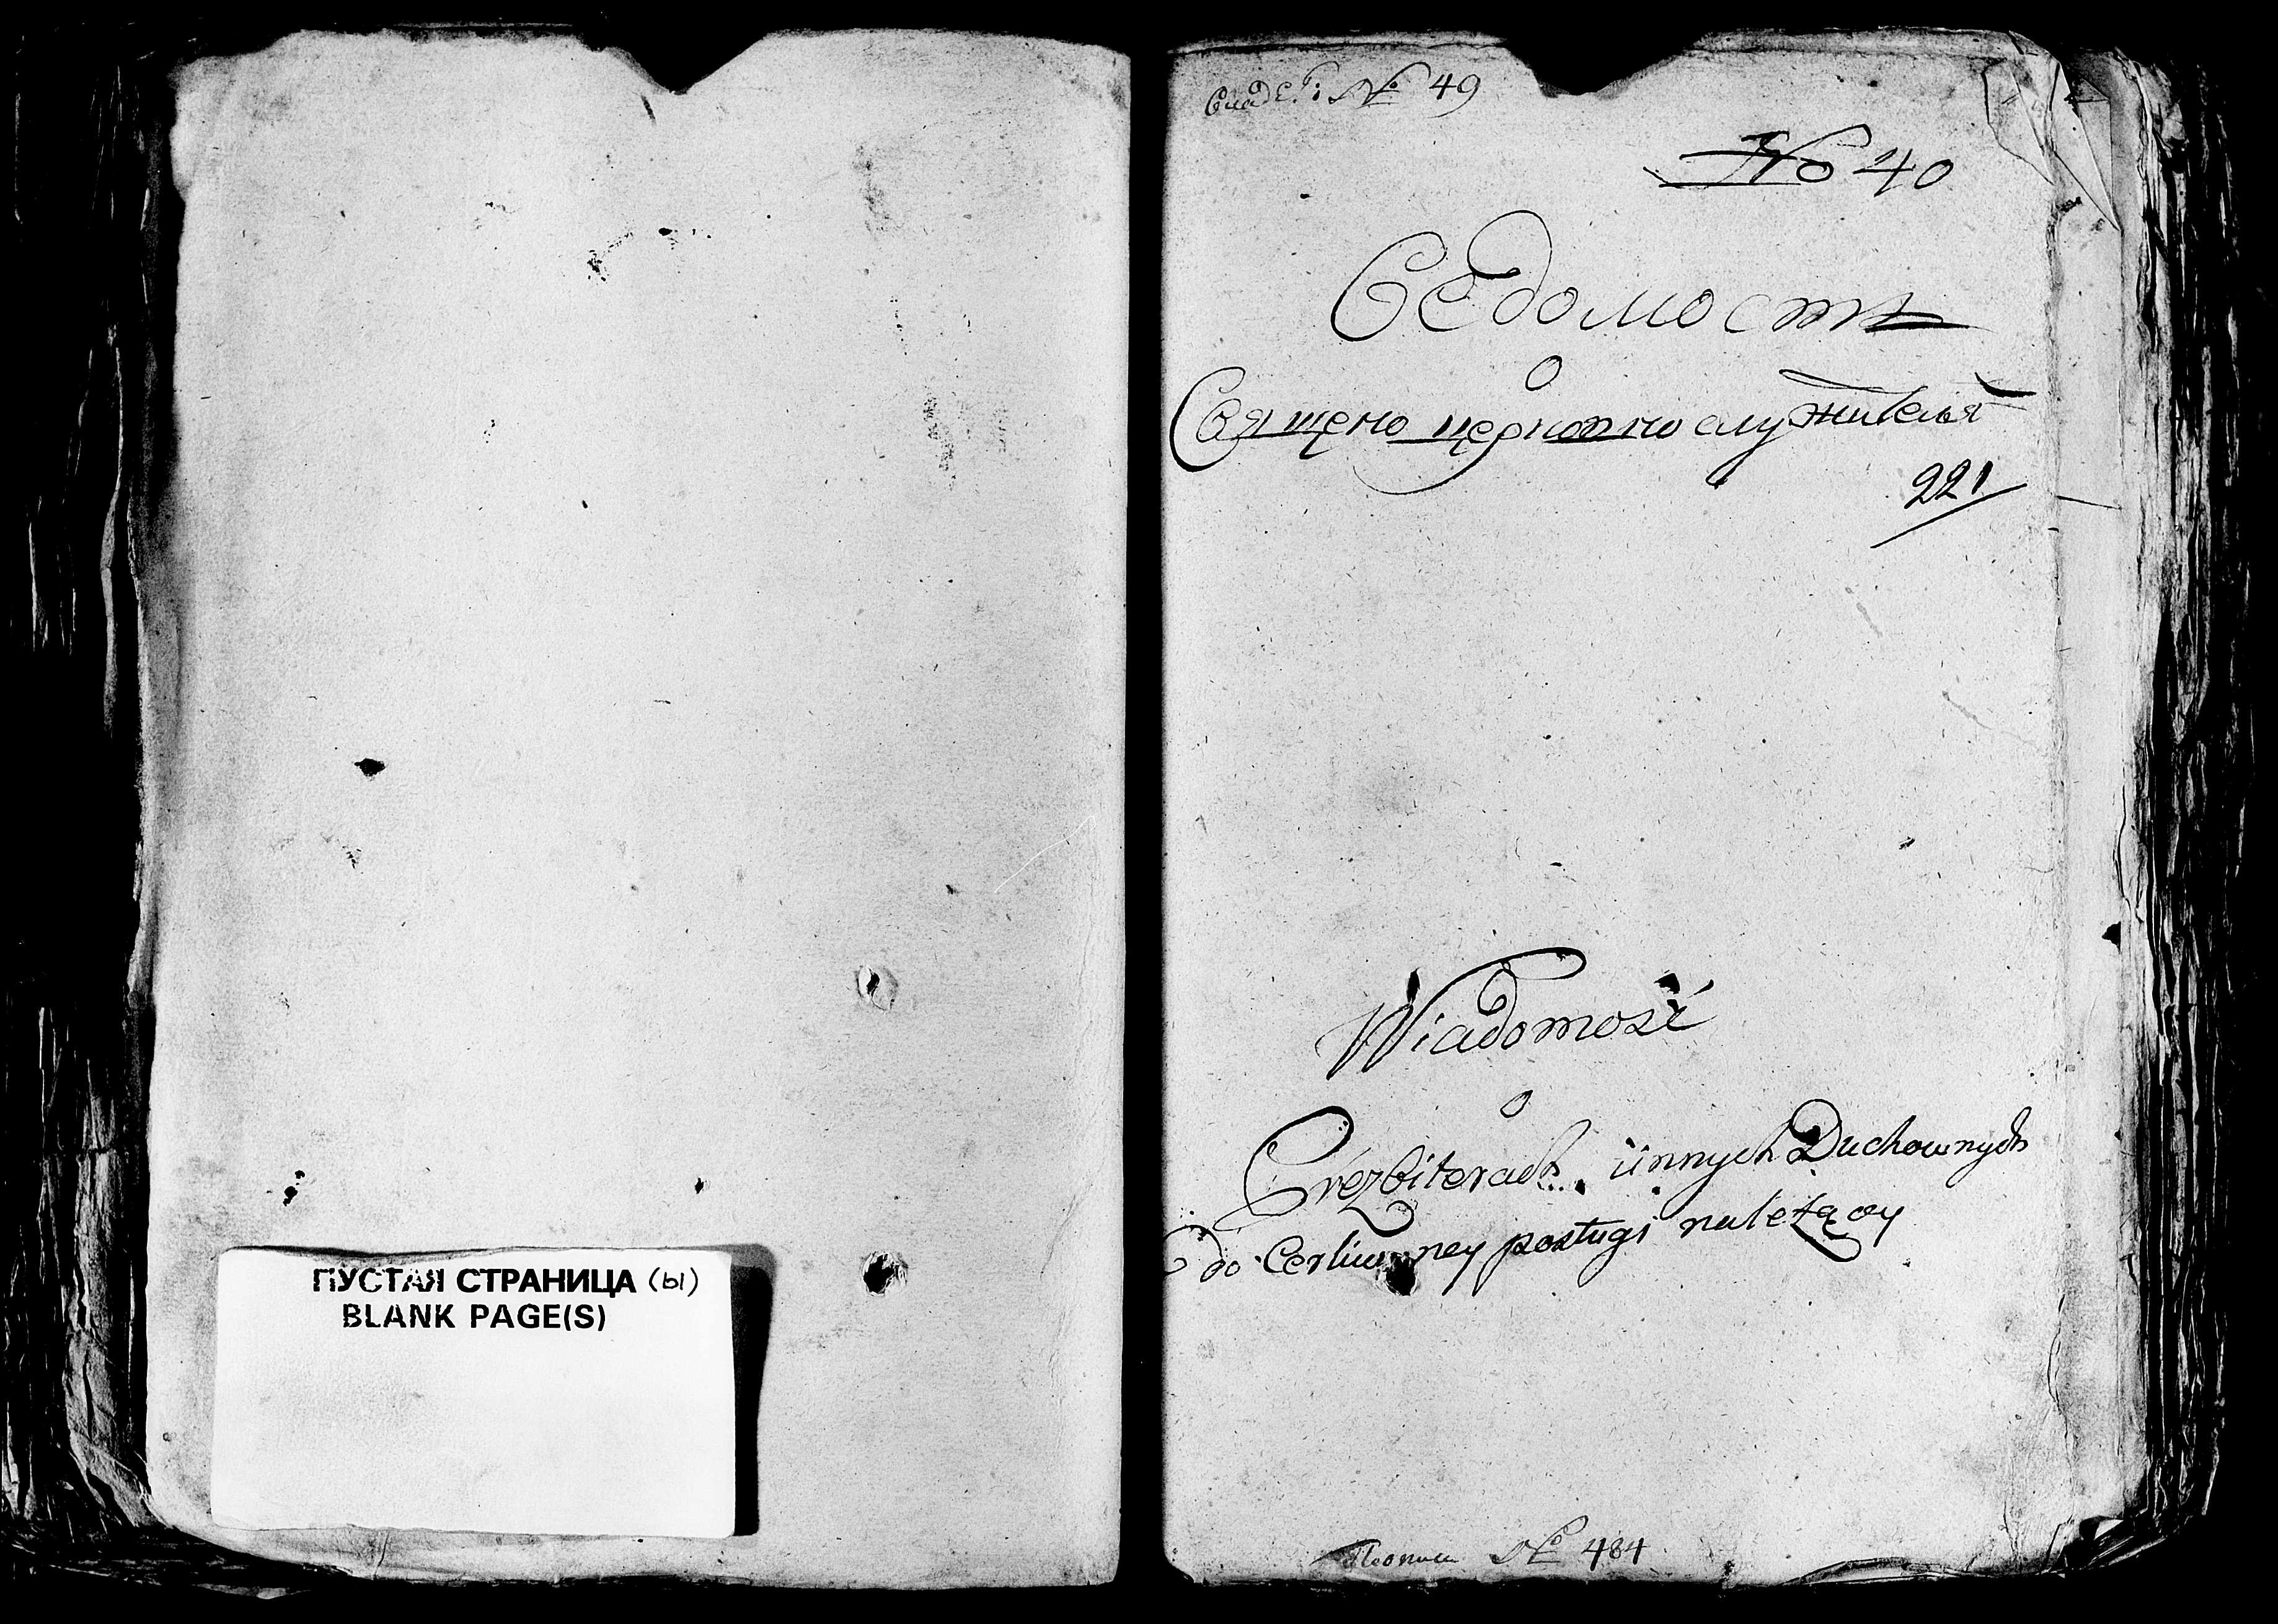 ПУСТАЯ СТРАНИЦА (ы)
BLANK PAGE(S)
№ 49
№ 40
Ведомость
о
Священо церковно служителях
221
Wiadomość
o
Prezbiterach iinnych Duchownych
do Cerkiewney posługi należący
№ 484